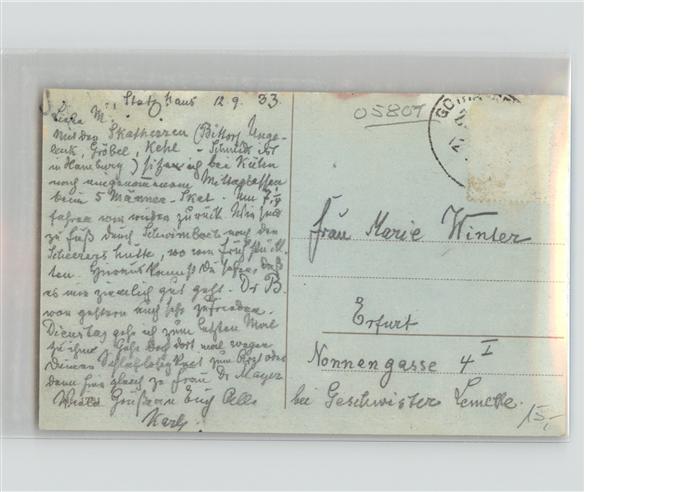 Stutzhaus 12.9.33.
Liebe M.
Mit den Skatherren (Bittorf, Unge-
lenk, Gröbel, Kehl - Schmidt ist
in Hamburg) sitzen ich bei Kühlem
noch eingenommenem Mittagessen
beim 5 Männer-Skat. Um 7
fahren wir wieder zurück. Wir sind
zu Fuß durch Schwimbach nach der
Scherershütte, wo wir frühstück-
ten. Hieraus kannst Du sehen, daß
es mir ziemlich gut geht. Dr B.
war gestern auch sehr zufrieden.
Dienstag gehe ich zum letzten Mal
zu ihm. Gehe doch dort mal wegen
Deiner Schlaflosigkeit zum Arzt oder
dann hier gleich zu Frau Dr Mayer
Viele Grüße an Euch Alle
Karl.
05801
GOTHA
Frau Marie Winter
Erfurt
Nonnengasse 4 I
bei Geschwister Lemcke.
15,-